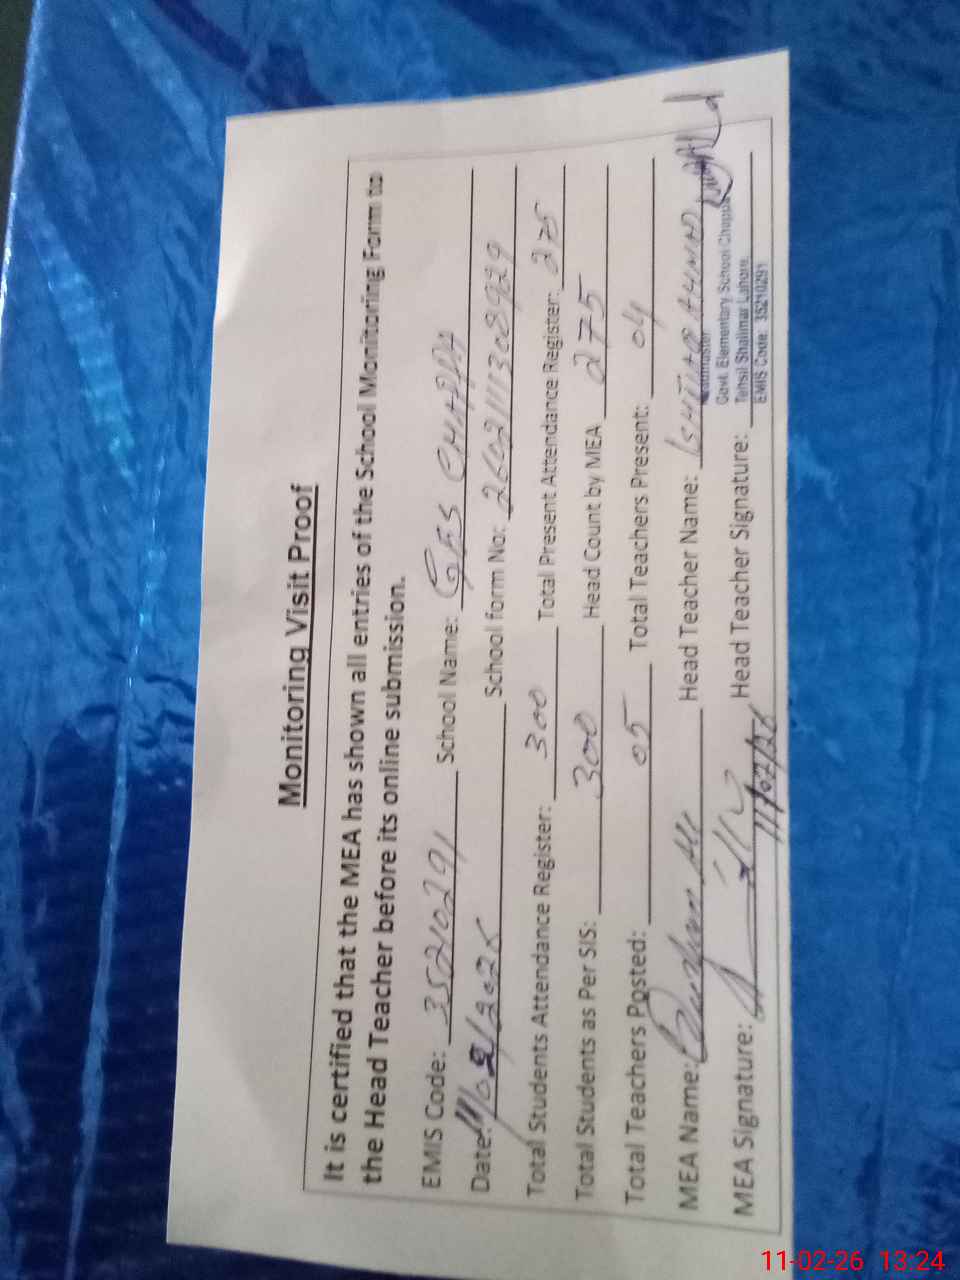 Monitoring Visit Proof
It is certified that the MEA has shown all entries of the School Monitoring Form to
the Head Teacher before its online submission.
EMIS Code: 35210291 School Name: GES CHAPPA
Date: 11/02/2026 School form No: 260211113089829
Total Students Attendance Register: 300 Total Present Attendance Register: 275
Total Students as Per SIS: 300 Head Count by MEA 275
Total Teachers Posted: 05 Total Teachers Present: 04
MEA Name: Ali Head Teacher Name: ISHTIAQ AHMAD
MEA Signature: 11/02/26 Head Teacher Signature:
Headmaster
Govt. Elementary School Chappa
Tehsil Shalimar Lahore.
EMIS Code: 35210291
11-02-26 13:24